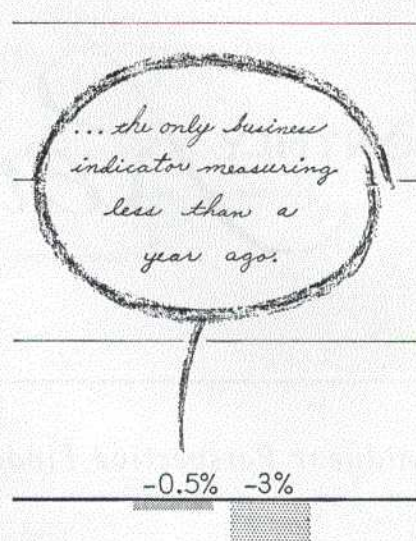 ...the only business
indicator measuring
less than a
year ago.
-0.5% -3%